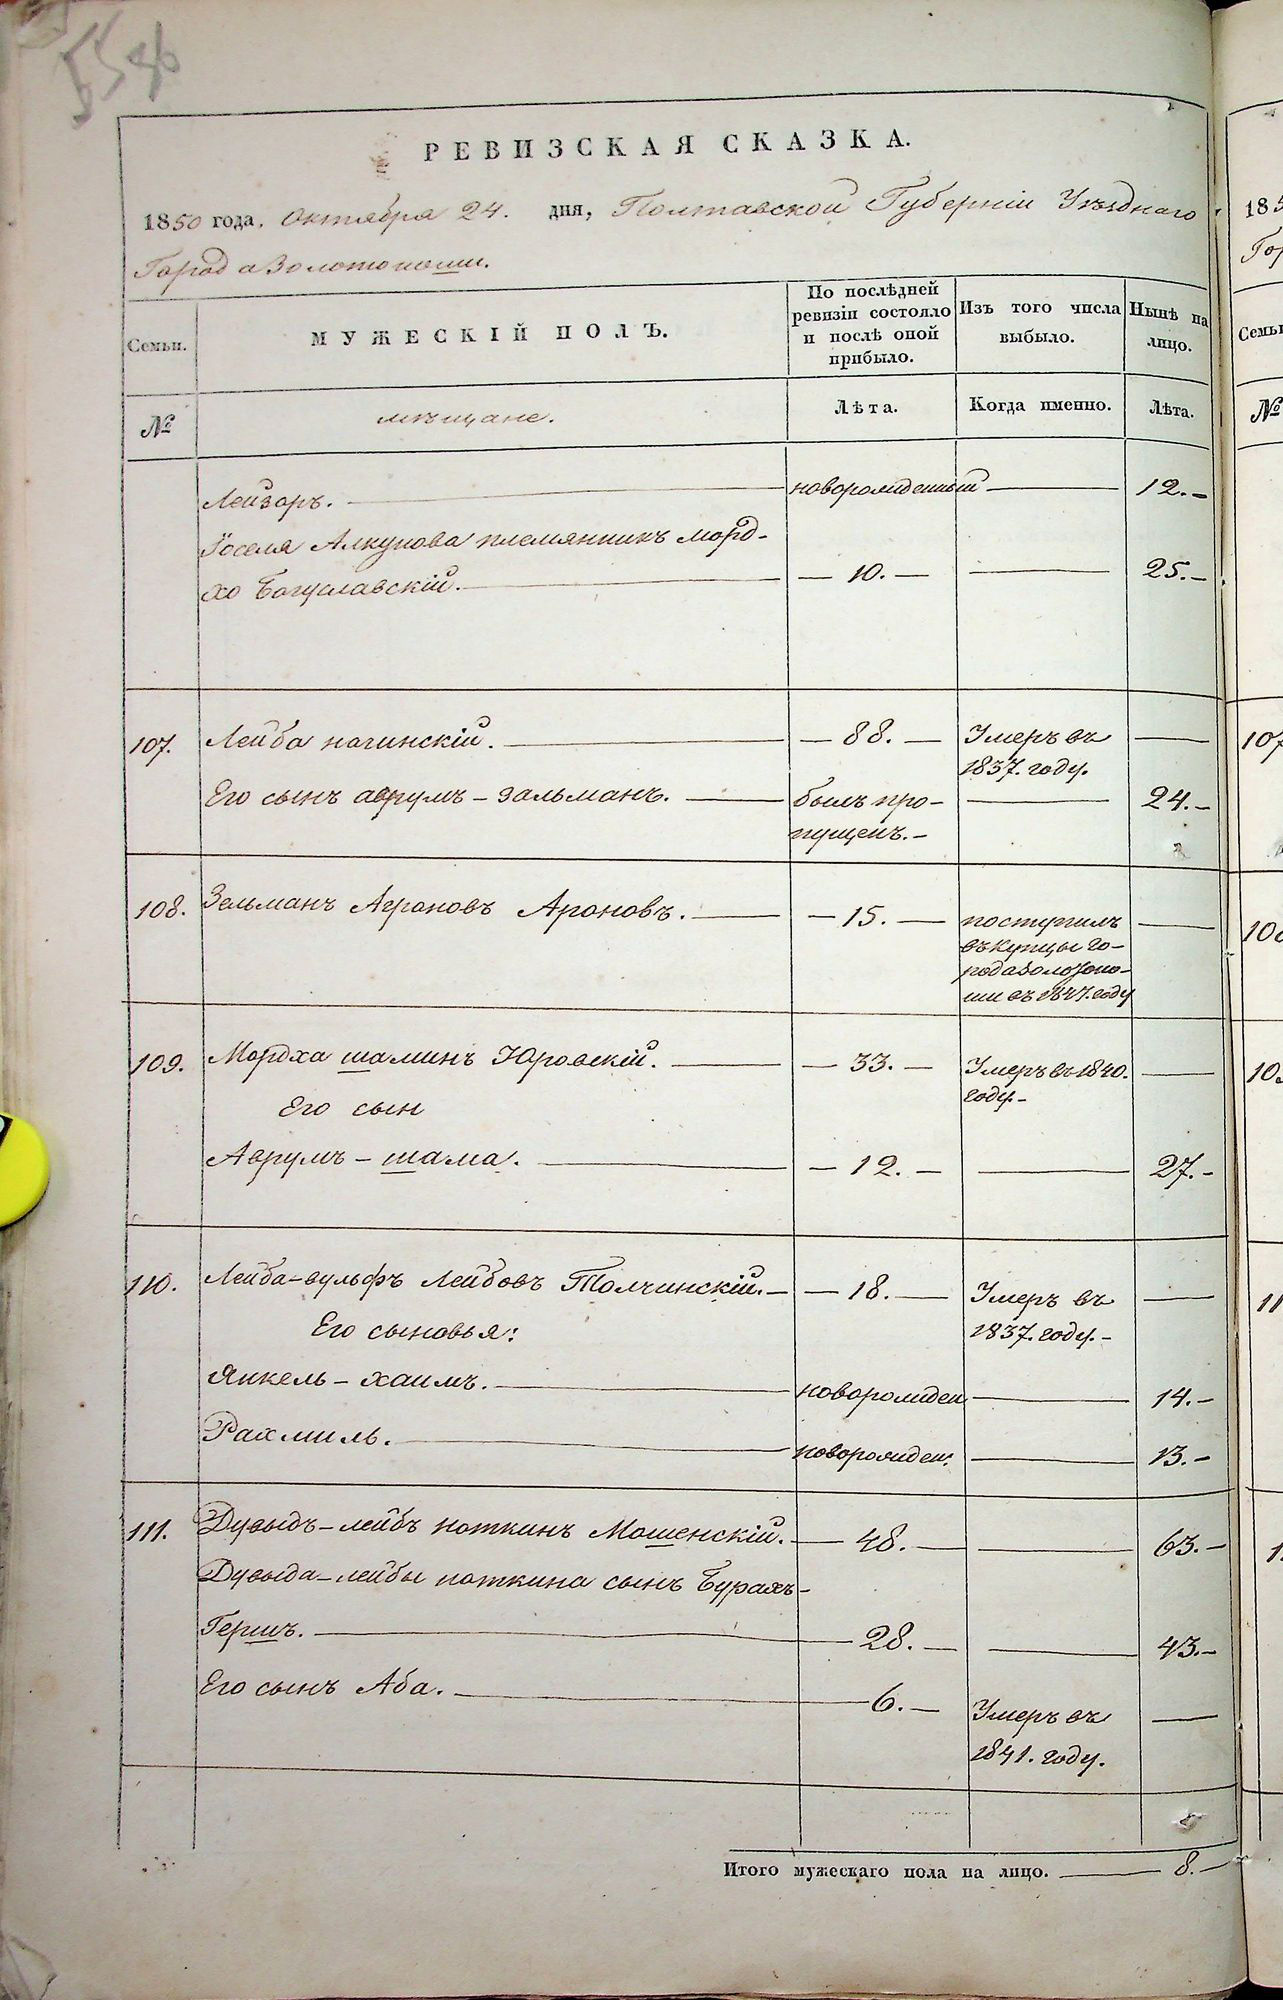 РЕВИЗСКАЯ СКАЗКА.
1850 года, Октября 24. дня, Полтавской Губерніи Уѣзднаго
Города Золотоноши.
Семьи.
МУЖЕСКІЙ ПОЛЪ.
По послѣдней
ревизіи состояло
и послѣ оной
прибыло.
Изъ того числа
выбыло.
Нынѣ на
лицо.
№
мѣщане.
Лѣта.
Когда именно.
Лѣта.
Лейзоръ. — новорожденный — 12.-
Іоселя Алкунова племянникъ Морд-
хо Богуславскій. — 10. — 25.-
107. Лейба нагинскій. — 88. — Умеръ въ —
1837. году.
Его сынъ аврумъ-зальманъ. — былъ про- — 24.-
пущенъ.-
108. Зельманъ Агроновъ Ароновъ. — 15. — поступилъ —
въ купцы го-
рода Золотоно-
ши въ 1847. году
109. Мордха шаминъ Юровскій. — 33. — Умеръ въ 1840. —
году.-
Его сын
Аврумъ-шама. — 12. — 27.-
110. Лейба-вульфъ Лейбовъ Толчинскій. — 18. — Умеръ въ —
1837. году.-
Его сыновья:
Янкель-хаимъ. — новорожден — 14.-
Рахмиль. — новорожден. — 13.-
111. Дувыдъ-лейбъ ноткинъ Мошенскій. — 48. — 63.-
Дувыда-лейбы ноткина сынъ Бурахъ-
Гершъ. — 28. — 43.-
Его сынъ Аба. — 6. — Умеръ въ —
1841. году.
Итого мужескаго пола на лицо. — 8.-
185
Гор
Семьи
№
107
108
109
11
1